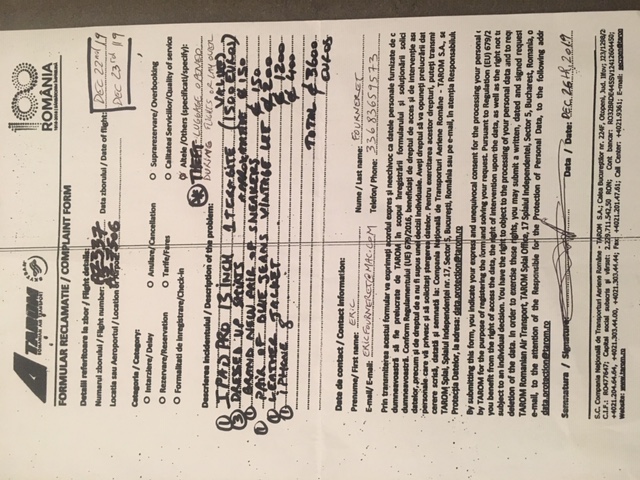 TAROM
ROMANIAN AIR TRANSPORT
SKYTEAM
100
ROMÂNIA
FORMULAR RECLAMATIE / COMPLAINT FORM
Detalii referitoare la zbor / Flight details:
Numarul zborului / Flight number: AZ337
Data zborului / Date of flight: DEC 22nd 19
DEC 23rd 19
Locatia sau Aeroportul / Location
Categoria / Category:
Intarziere/ Delay
Anulare/ Cancellation
Suprarezervare/ Overbooking
Rezervare/Reservation
Tarife/Fares
Calitatea Serviciilor/Quality of service
Formalitati de inregistrare/Check-in
Altele /Others (specificati/specify):
THEFT LUGGAGE OPENED
DURING FLIGHTS OR LAY OVER
Descrierea incidentului / Description of the problem:
VALUE)
① IPAD PRO 13 INCH 1 TERABITE (1500 EUROS)
③ DRESSED UP SHIRTS APPROXIMATE € 150
① BRAND NEW PAIR OF SNEAKERS € 150
① PAIR OF BLUE JEANS VINTAGE LEE € 200
① LEATHER JACKET € 1200
① IPHONE 8 € 400
TOTAL € 3600
EUROS
Date de contact / Contact information:
Prenume/ First name: ERIC
Nume / Last name: FOURNERET
E-mail/ E-mail: ERICFOURNERET@MAC.COM
Telefon/ Phone: 33683659573
Prin transmiterea acestui formular va exprimați acordul expres și neechivoc ca datele personale furnizate de c
dumneavoastră să fie prelucrate de TAROM în scopul înregistrării formularului și soluționării solici
dumneavoastră. Conform Regulamentul (UE) 679/2016, beneficiați de dreptul de acces și de intervenție asu
datelor, precum și de dreptul de a nu fi supus unei decizii individuale. Aveți dreptul să va opuneți prelucrării dat
personale care vă privesc și să solicitați ștergerea datelor. Pentru exercitarea acestor drepturi, puteți transmit
cerere scrisă, datată și semnată la: Compania Națională de Transporturi Aeriene Române - TAROM S.A., se
TAROM Splai, Splaiul Independentei nr. 17, Sector 5, București, România sau pe e-mail, în atenția Responsabilul
Protecția Datelor, la adresa: data.protection@tarom.ro
By submitting this form, you indicate your express and unequivocal consent for the processing your personal
by TAROM for the purpose of registering the form and solving your request. Pursuant to Regulation (EU) 679/2
you benefit from the right of access the data, the right of intervention upon the data, as well as the right not t
subject to an individual decision. You have the right to object to the processing of your personal data and to req
deletion of the data. In order to exercise these rights, you may submit a written, dated and signed request
TAROM Romanian Air Transport, TAROM Splai Office, 17 Splaiul Independentei, Sector 5, Bucharest, Romania, o
e-mail, to the attention of the Responsible for the Protection of Personal Data, to the following addr
data.protection@tarom.ro
Semnatura / Signature
Data / Date: DEC 26th, 2019
S.C. Compania Națională de Transporturi Aeriene Române - TAROM S.A.; Calea Bucureștilor nr. 224F, Otopeni, Jud. Ilfov; J23/1298/2
C.I.F.: RO477647; Capital social subscris și vărsat: 2.229.711.542,50 RON; Cont bancar: RO32BRDE445SV12412604450;
+4021.204.64.64, +4021.303.44.00, +4021.303.44.44; Fax: +4021.201.47.61; Call Center: +4021.9361; E-mail: secgen@tarom
Website: www.tarom.ro